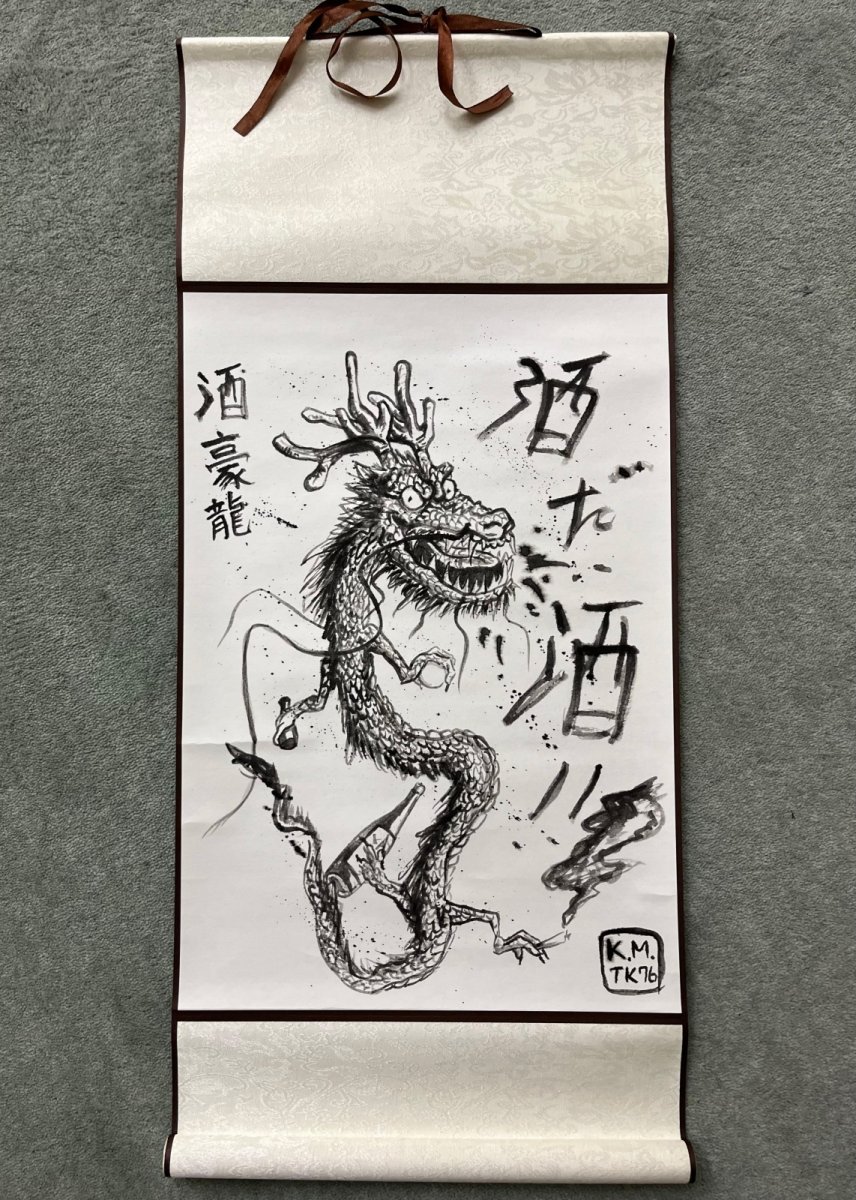 酒だ酒
酒豪龍
K.M.
TK76